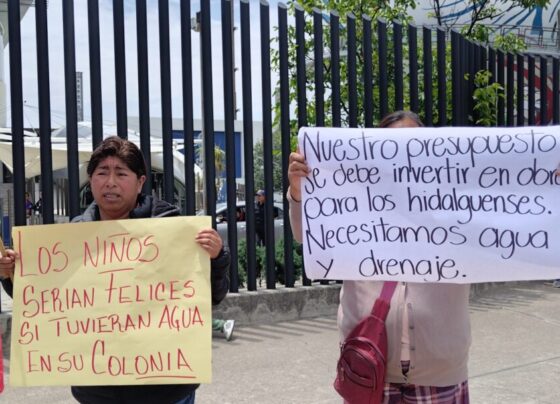 LOS NIÑOS
SERIAN FELICES
SI TUVIERAN AGUA
EN SU COLONIA
NUESTRO PRESUPUESTO
SE DEBE INVERTIR EN OBRA
PARA LOS HIDALGUENSES.
NECESITAMOS AGUA
Y DRENAJE.